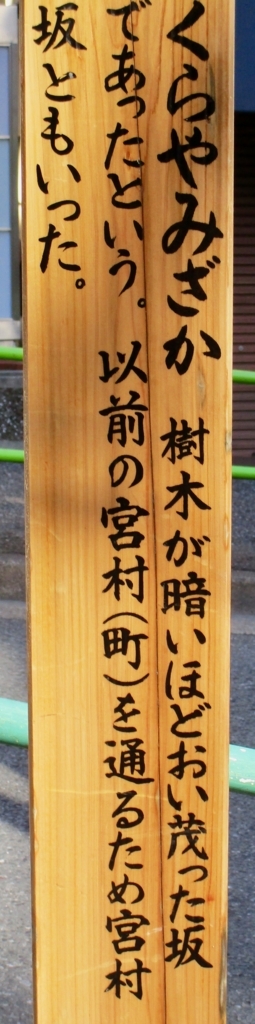 くらやみざか 樹木が暗いほどおい茂った坂
であったという。 以前の宮村(町)を通るため宮村
坂ともいった。